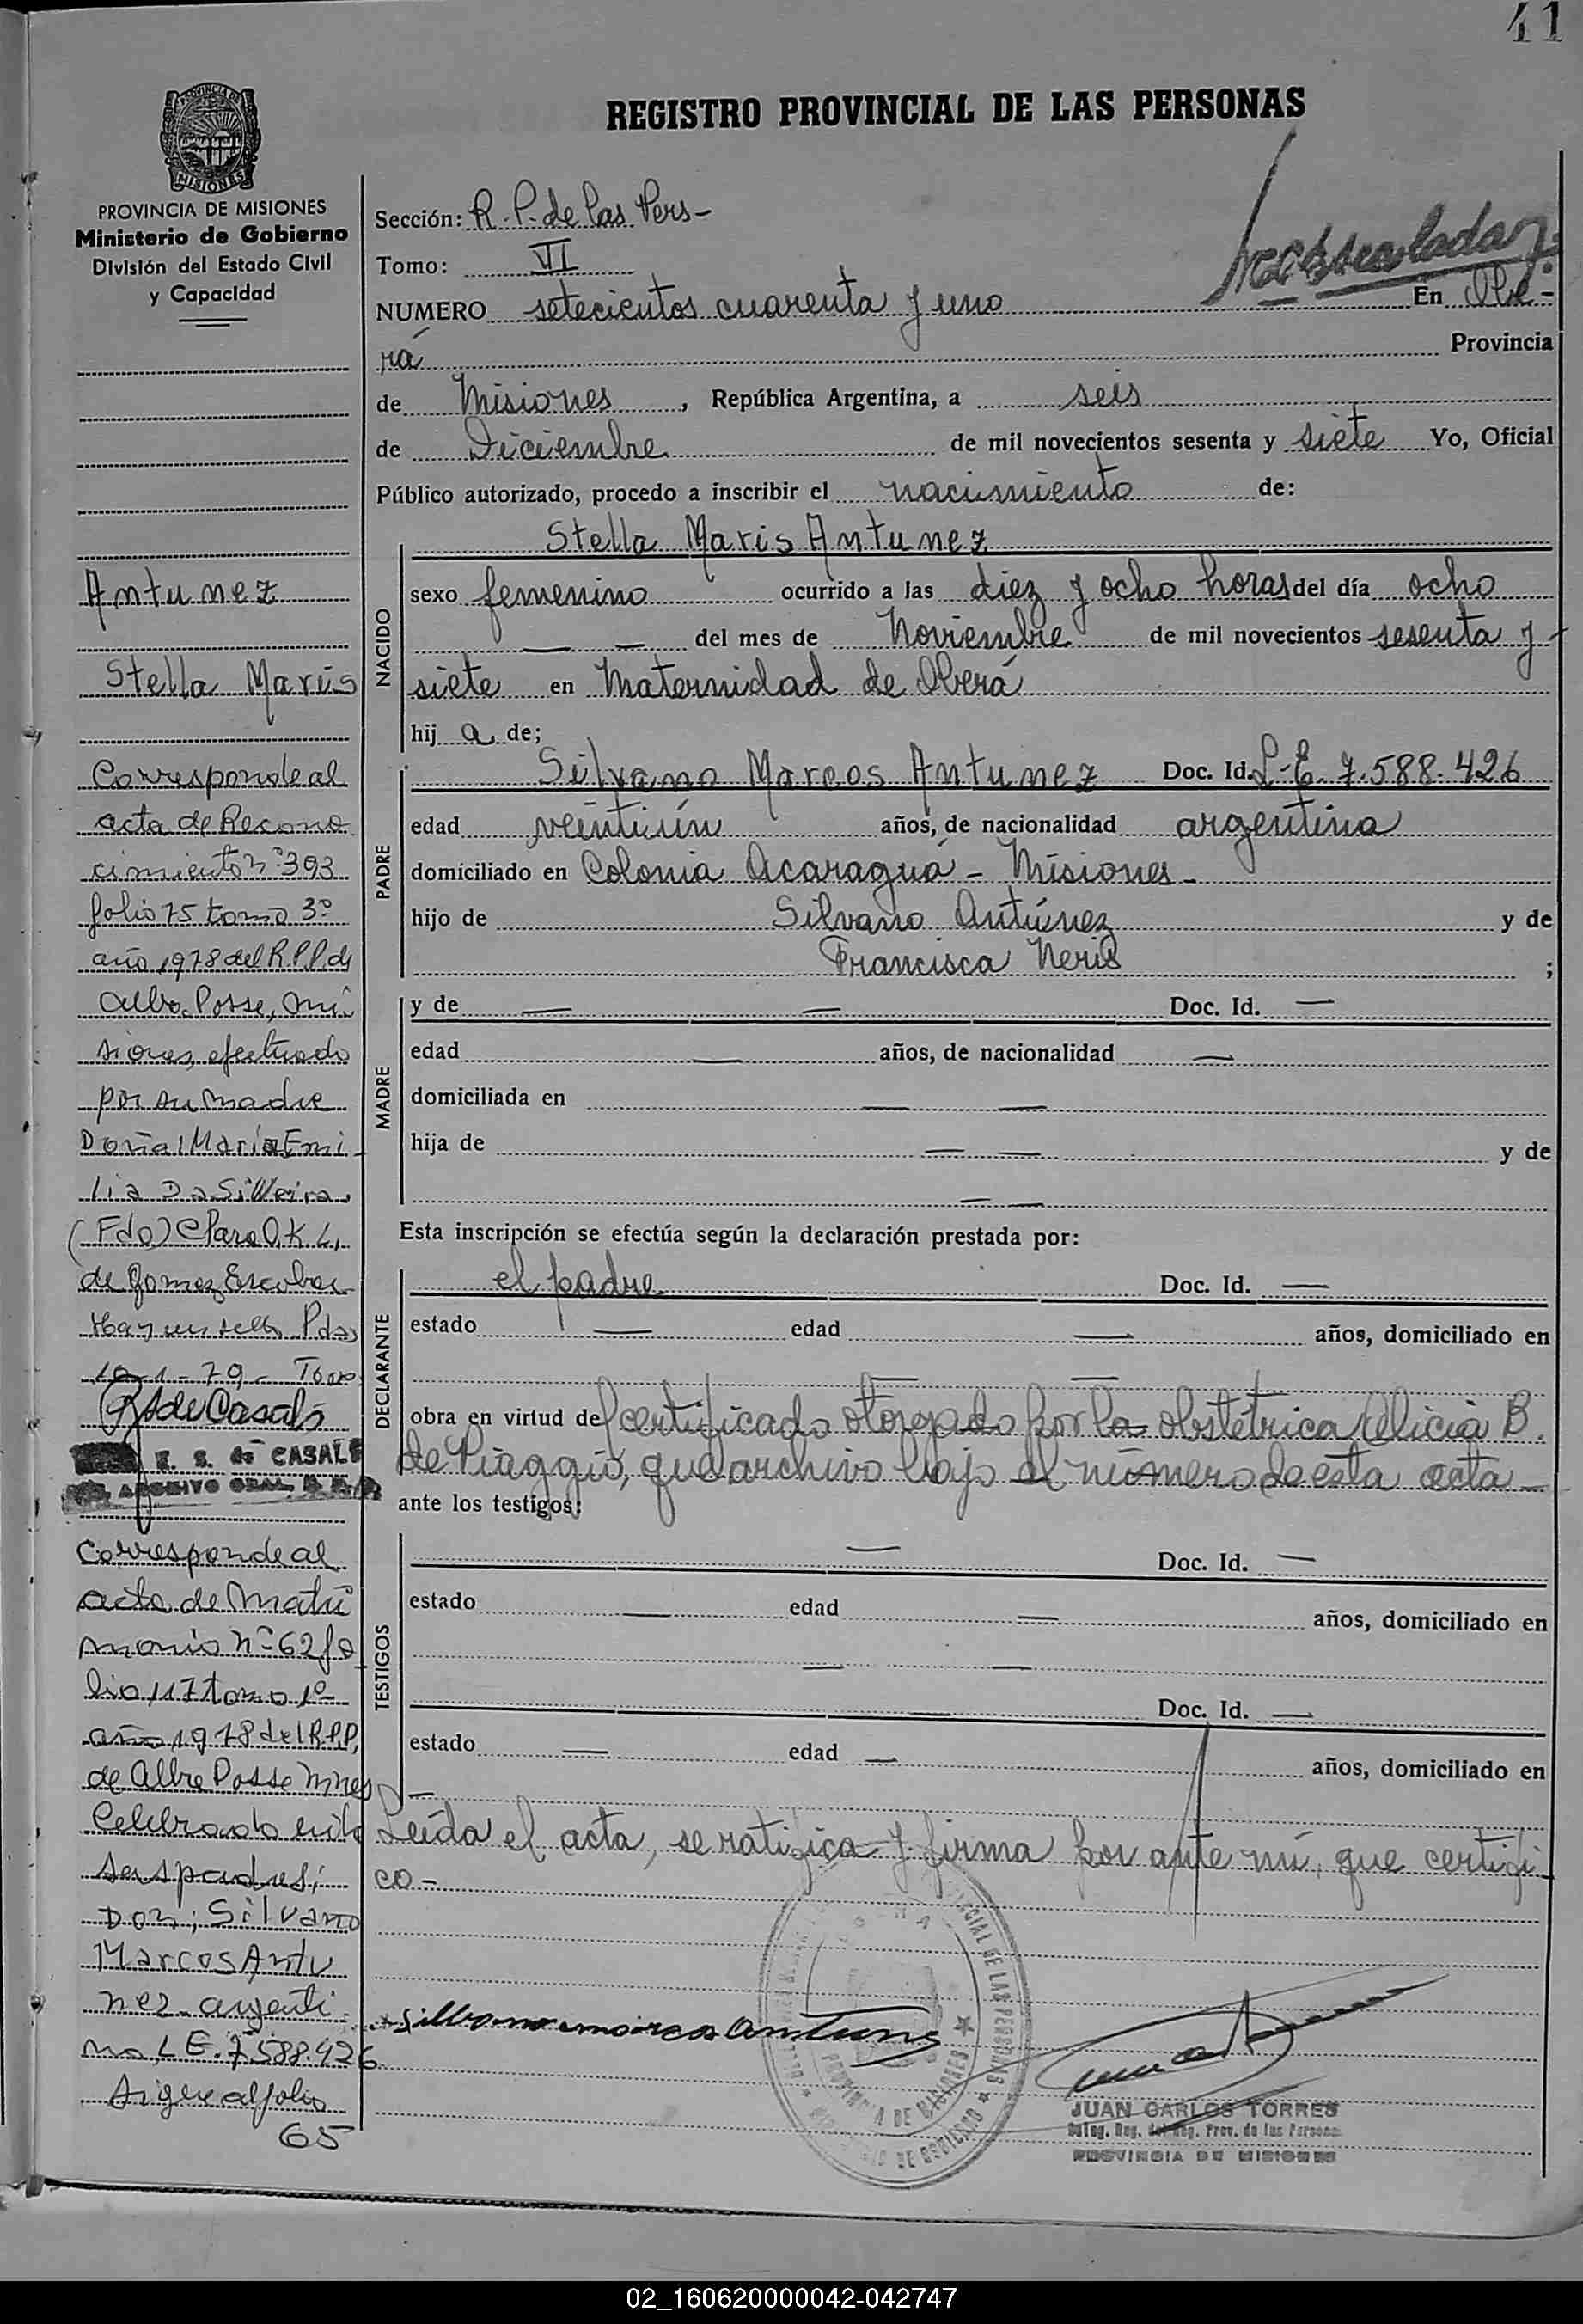 41
REGISTRO PROVINCIAL DE LAS PERSONAS
PROVINCIA DE MISIONES
MISIONES
PROVINCIA DE MISIONES
Ministerio de Gobierno
División del Estado Civil
y Capacidad
Antunez
Stella Maris
Corresponde al
acta de Recono
cimiento nº 393
folio 75 tomo 3º
año 1978 del R.P.P. de
Alba Posse, Mi
siones, efectuado
por su madre
Doña: María Emi
lia Da Silveira.
(Fdo) Clara O.K.L.
de Gomez Escobar
Hay un sello Pdas
10-1-79-
RS de Casals
R. S. de CASALS
ARCHIVO GRAL.
Corresponde al
acta de Matri
monio nº 62 fo
lio 117 tomo 1º
año 1978 del R.P.P.
de Alba Posse Mnes
Celebrado
sus padres;
Don; Silvano
Marcos Antu
nez- argenti
no, L E. 7.588.426
Sigue al folio
65
Sección: R. P. de las Pers-
Tomo: VI
NUMERO setecientos cuarenta y uno En Obe-
rá Provincia
de Misiones, República Argentina, a seis
de Diciembre de mil novecientos sesenta y siete Yo, Oficial
Público autorizado, procedo a inscribir el nacimiento de:
NACIDO
Stella Maris Antunez
sexo femenino ocurrido a las diez y ocho horas del día ocho
— — del mes de Noviembre de mil novecientos sesenta y
siete en Maternidad de Oberá
hij a de;
PADRE
Silvano Marcos Antunez Doc. Id. L.E. 7.588.426
edad veintiún años, de nacionalidad argentina
domiciliado en Colonia Acaraguá - Misiones-
hijo de Silvano Antúnez y de
Francisca Neris ;
MADRE
y de — — Doc. Id. —
edad — años, de nacionalidad —
domiciliada en — —
hija de — — y de
— —
Esta inscripción se efectúa según la declaración prestada por:
DECLARANTE
el padre Doc. Id. —
estado — edad — años, domiciliado en
— —
obra en virtud del certificado otorgado por la obstétrica Alicia B.
de Piaggio, que archivo bajo el número de esta acta-
ante los testigos:
TESTIGOS
— Doc. Id. —
estado — edad — años, domiciliado en
— —
— Doc. Id. —
estado — edad — años, domiciliado en
—
Leída el acta, se ratifica y firma por ante mí, que certifi
co-
PROVINCIA DE MISIONES
JUAN CARLOS TORRES
Deleg. Reg. Prov. de las Personas
PROVINCIA DE MISIONES
02_160620000042-042747